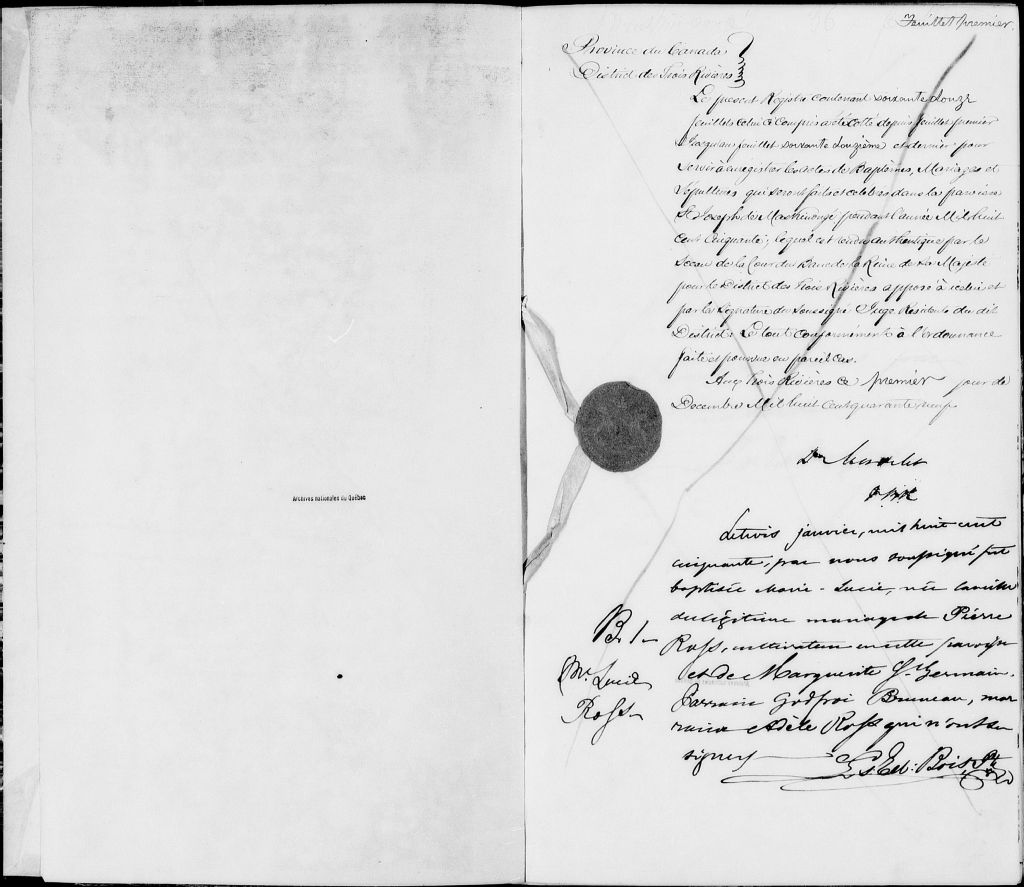 Archives nationales du Québec
Feuillet premier.
Province du Canada
District des Trois Rivières
Le présent Régistre contenant soixante douze
feuillets celui ci compris a été cotté depuis feuillet premier
Jusqu'au feuillet soixante douzième et dernier pour
Servir à enrégistrer les actes de Baptêmes, Mariages et
Sépultures qui seront faits et célébrés dans la paroisse
St Joseph de Maskinongé pendant l'année Mil huit
Cent Cinquante; lequel est rendu authentique par le
Sceau de la Cour du Banc de la Reine de Sa Majesté
pour le District des Trois Rivières apposé à icelui et
par la Signature du Soussigné Juge Résident du dit
District. Le tout conformément à l'ordonnance
faite et pourvue en pareil Cas.
Aux Trois Rivières ce premier jour de
Decembre Mil huit Cent quarante neuf.
Le trois janvier, mil huit cent
cinquante, par nous soussigné fut
baptisée Marie-Lucie, née la veille
du légitime mariage de Pierre
Ross, cultivateur en cette paroisse
et de Marguerite St Germain.
Parrain Godfroi Bruneau, mar
raine Adèle Ross qui n'ont su
signer
Ls Ed. Bois, Ptre
B. 1
M. Lucie
Ross